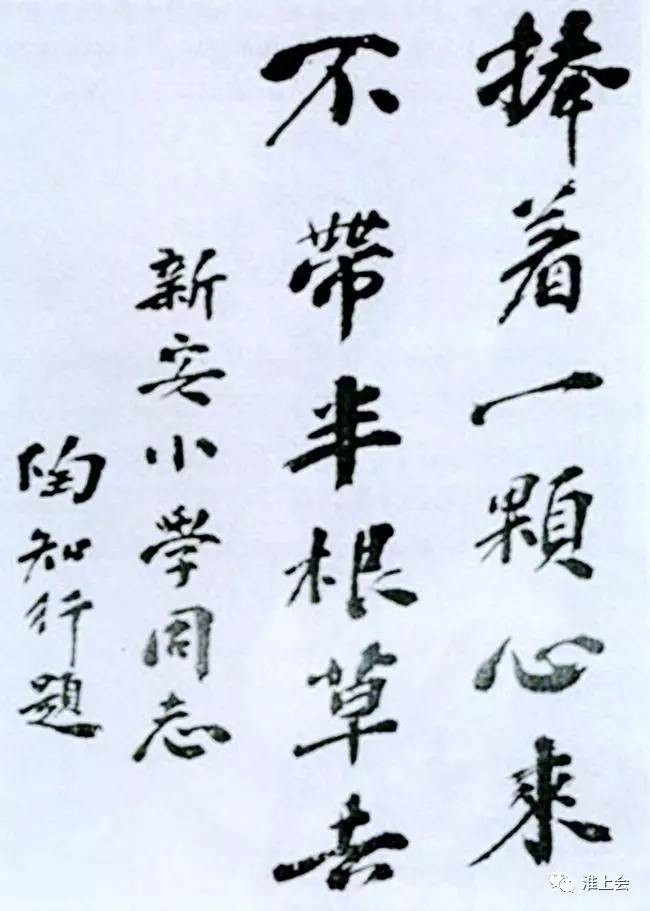 捧着一顆心來
不帶半根草去
新安小學同志
陶知行題
淮上会